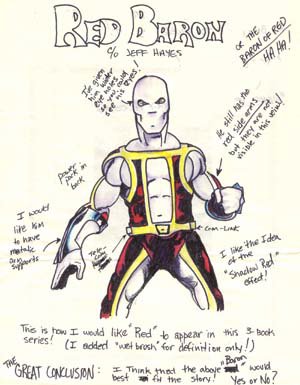 RED BARON
c/o JEFF HAYES
or THE
BARON OF RED
HA, HA!
I've given
him wider
eye holes
so you could
see his eyes!
He still has the
red side arms
but they are not
visible in this view!
power pack in
back
I would
like him
to have
metalic
arm
supports
Com-Link
I like the Idea
of the
"Shadow Red"
effect!
This is how I would like "Red" to appear in this 3-book
series! (I added "wet brush" for definition only!)
THE
GREAT CONCLUSION:
I Think the above Baron would
best fit the story! Yes or No?